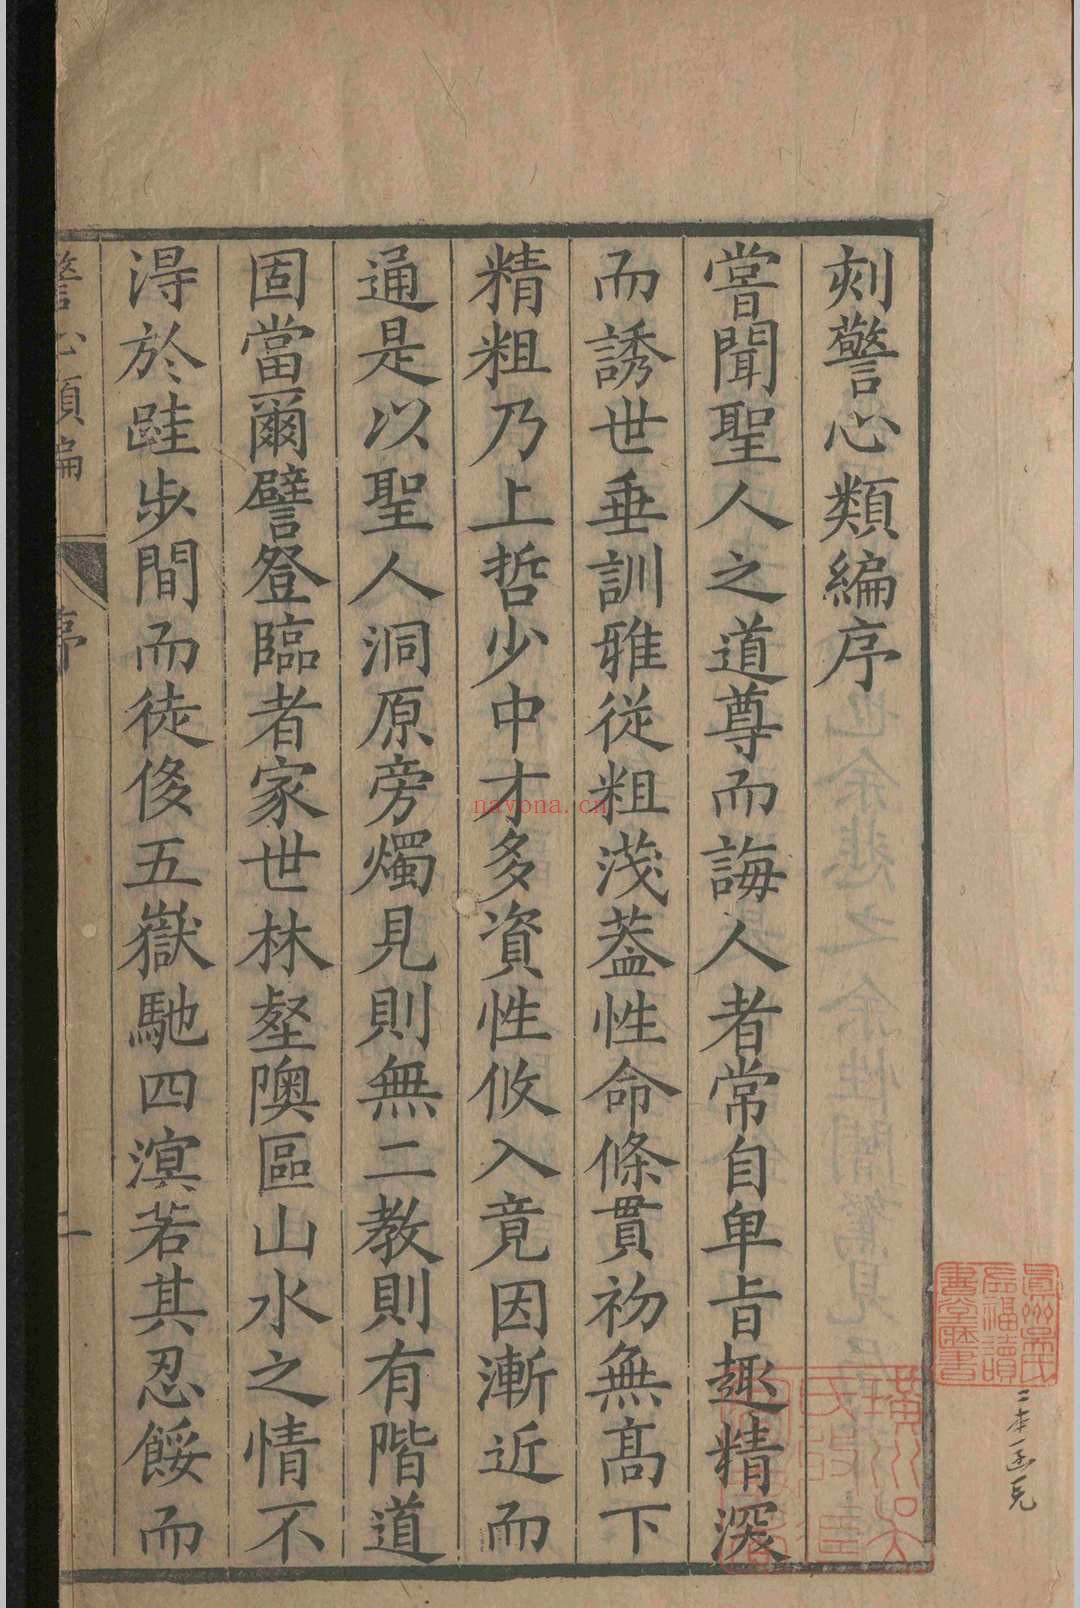 刻警心類編序
嘗聞聖人之道尊而誨人者常自卑旨趣精深
而誘世垂訓雅從粗淺葢性命條貫初無高下
精粗乃上哲少中才多資性攸入竟因漸近而
通是以聖人洞原旁燭見則無二教則有階道
固當爾譬登臨者家世林壑隩區山水之情不
淂於跬步間而徒侈五嶽馳四溟若其忍餒而
警心類編
序
一
二本一函完
nayona.cn